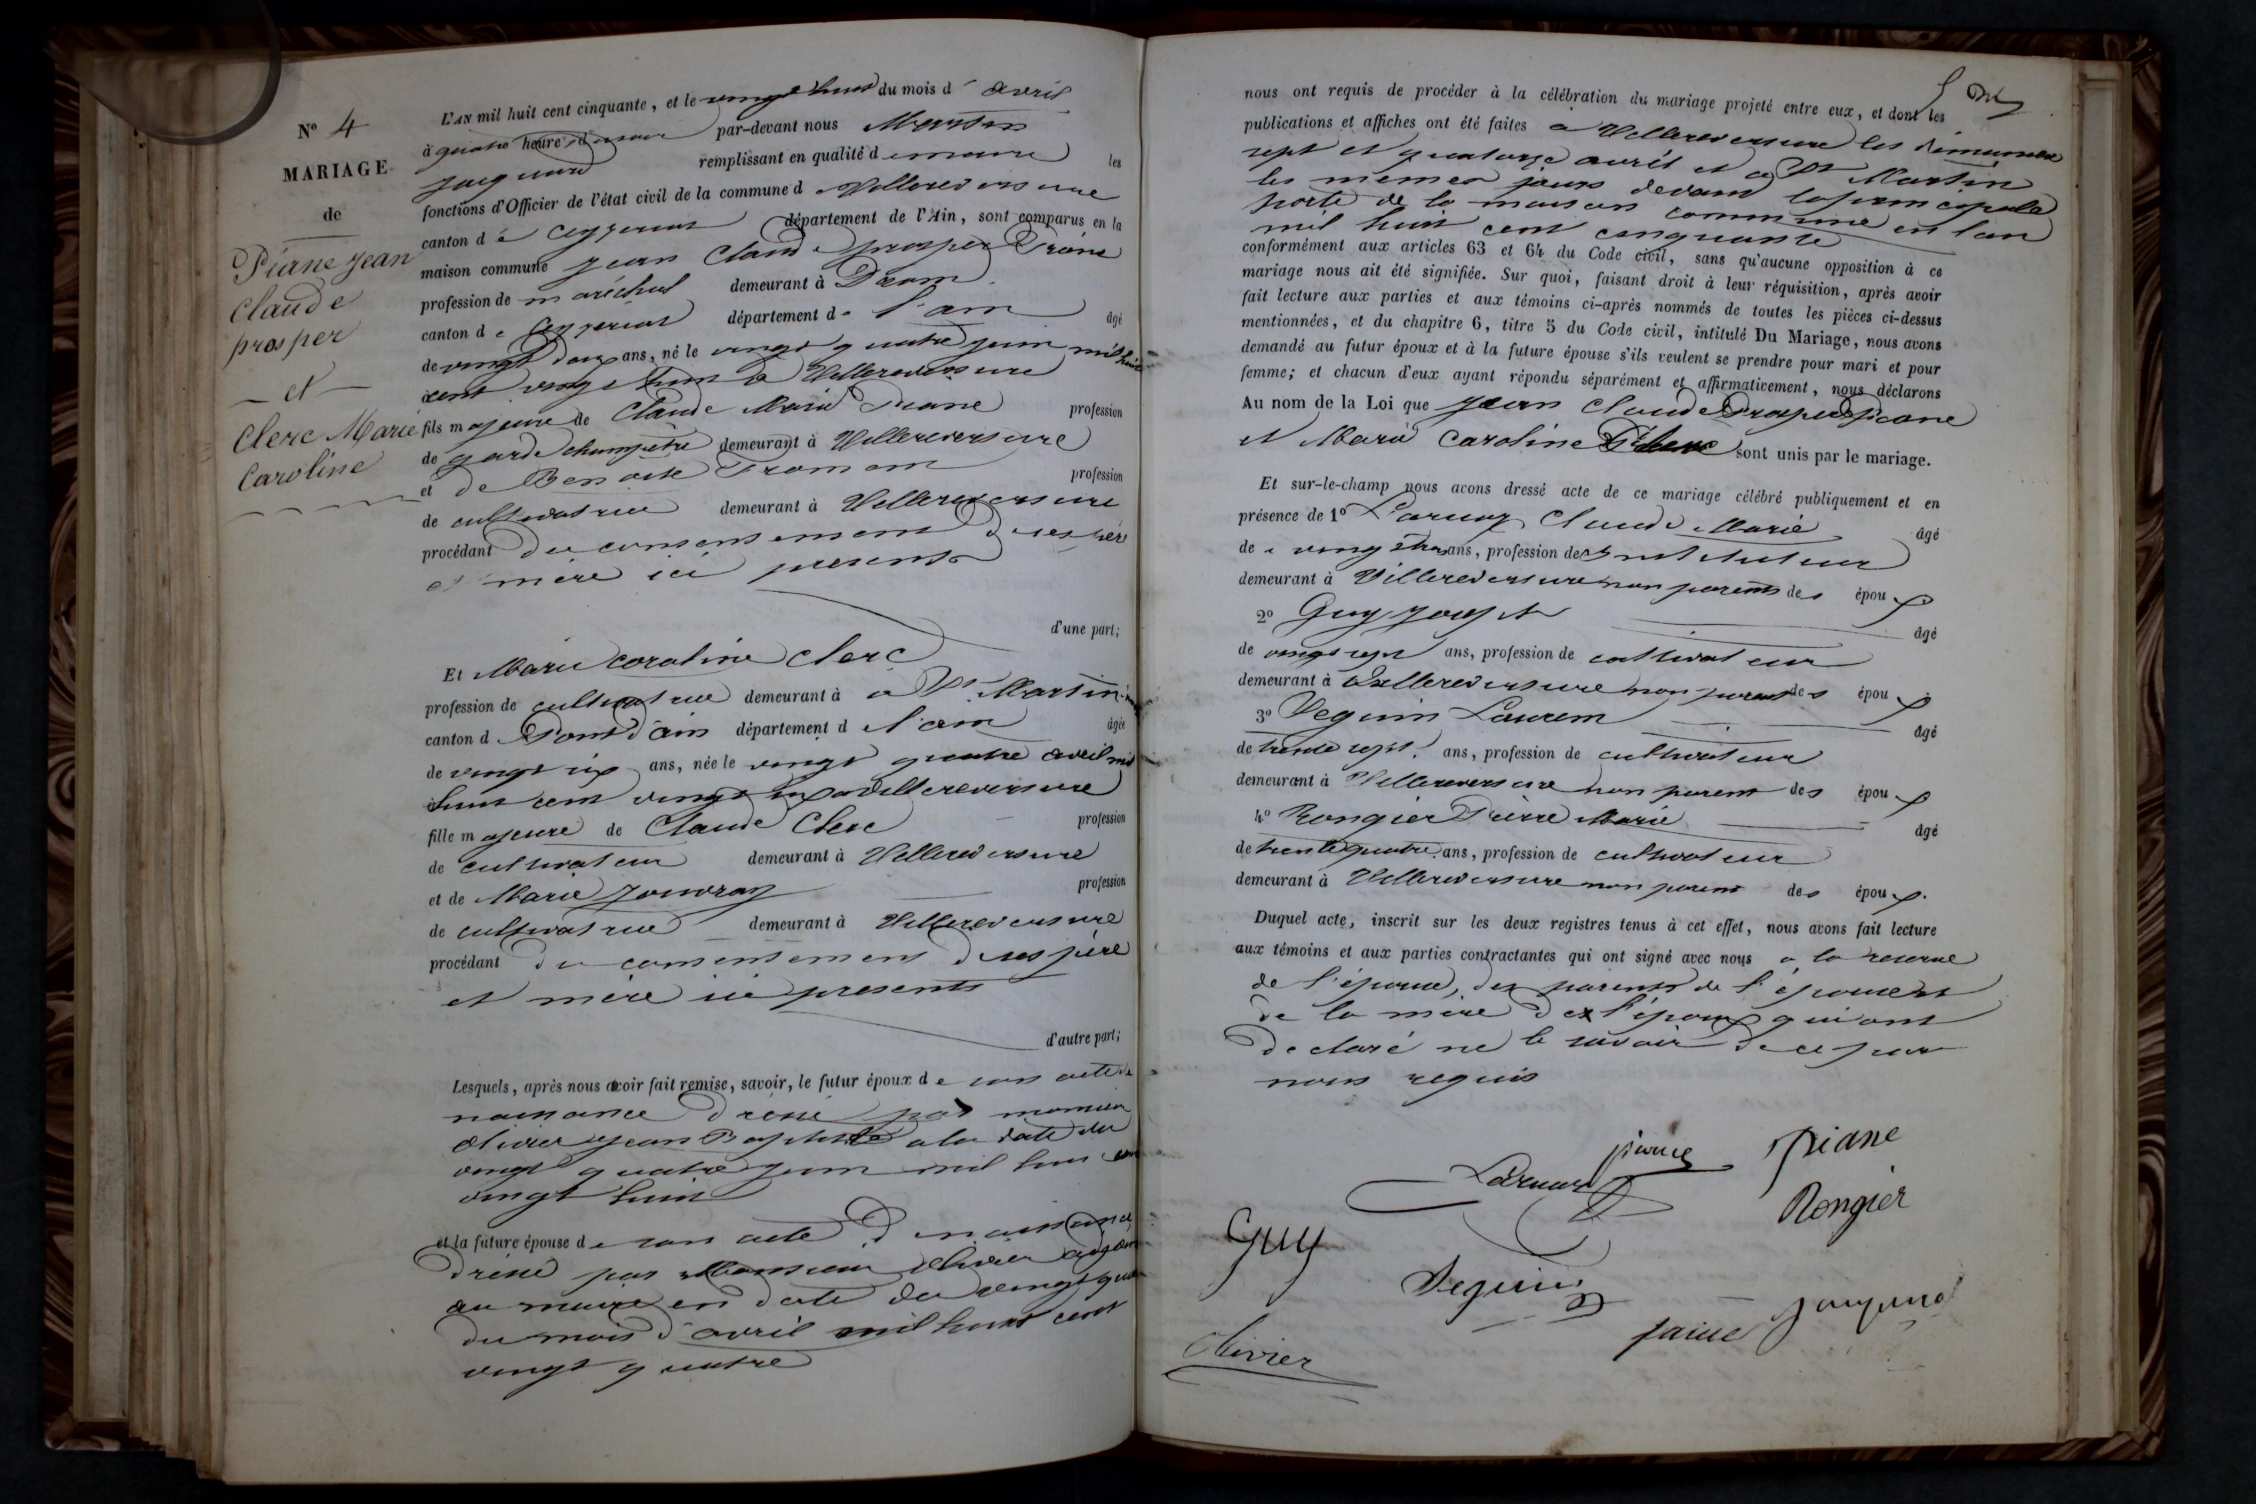 N° 4
MARIAGE
de
Piane Jean
Claude
prosper
et
Clerc Marie
Caroline
L'AN mil huit cent cinquante, et le vingt huit du mois d'avril
à quatre heure du soir par-devant nous Martin
Jacquand remplissant en qualité de maire les
fonctions d'Officier de l'état civil de la commune de Villereversure
canton de Ceyzeriat département de l'Ain, sont comparus en la
maison commune Jean Claude prosper Piane
profession de maréchal demeurant à Drom
canton de Ceyzeriat département de l'ain âgé
de vingt deux ans, né le vingt quatre juin mil huit
cent vingt huit à Villereversure
fils majeure de Claude Marie Piane profession
de garde champêtre demeurant à Villereversure
et de Benoite Fromont profession
de cultivatrice demeurant à Villereversure
procédant du consentement de ses père
et mère ici présents
d'une part;
Et Marie Caroline Clerc
profession de cultivatrice demeurant à a St Martin
canton d Pont d'ain département de l'ain âgée
de vingt six ans, née le vingt quatre avril mil
huit cent vingt a Villereversure
fille majeure de Claude Clerc profession
de cultivateur demeurant à Villereversure
et de Marie Jouvray profession
de cultivatrice demeurant à Villereversure
procédant du consentement de ses père
et mère ici présents
d'autre part;
Lesquels, après nous avoir fait remise, savoir, le futur époux de son acte de
naissance dréssé par monsieur
Olivier Jean Baptiste a la date du
vingt quatre juin mil huit cent
vingt huit
et la future épouse de son acte de naissance
dréssé par Monsieur Olivier adjoint
au maire en date du vingt quatre
du mois d'avril mil huit cent
vingt quatre
nous ont requis de procéder à la célébration du mariage projeté entre eux, et dont les
publications et affiches ont été faites a Villereversure les dimanches
sept et quatorze avril et a St Martin
les memes jours devant la principale
porte de la maison commune en l'an
mil huit cent cinquante
conformément aux articles 63 et 64 du Code civil, sans qu'aucune opposition à ce
mariage nous ait été signifiée. Sur quoi, faisant droit à leur réquisition, après avoir
fait lecture aux parties et aux témoins ci-après nommés de toutes les pièces ci-dessus
mentionnées, et du chapitre 6, titre 5 du Code civil, intitulé Du Mariage, nous avons
demandé au futur époux et à la future épouse s'ils veulent se prendre pour mari et pour
femme; et chacun d'eux ayant répondu séparément et affirmativement, nous déclarons
Au nom de la Loi que Jean Claude Prosper Piane
et Marie Caroline Clerc sont unis par le mariage.
Et sur-le-champ nous avons dressé acte de ce mariage célébré publiquement et en
présence de 1° Larnay Claude Marie âgé
de vingt ans, profession de instituteur
demeurant à Villereversure non parents des époux
2° Guy Joseph âgé
de vingt sept ans, profession de cultivateur
demeurant à Villereversure non parent des époux
3° Seguin Laurent âgé
de trente sept ans, profession de cultivateur
demeurant à Villereversure non parent des époux
4° Rongier Pierre Marie âgé
de trente quatre ans, profession de cultivateur
demeurant à Villereversure non parent des époux.
Duquel acte, inscrit sur les deux registres tenus à cet effet, nous avons fait lecture
aux témoins et aux parties contractantes qui ont signé avec nous a la reserve
de l'épouse, des parents de l'épouse et
de la mère de l'époux qui ont
declaré ne le savoir de ce par
nous requis
piane
Piane
Larnay
Rongier
Guy
Seguin
Jacquand
Olivier